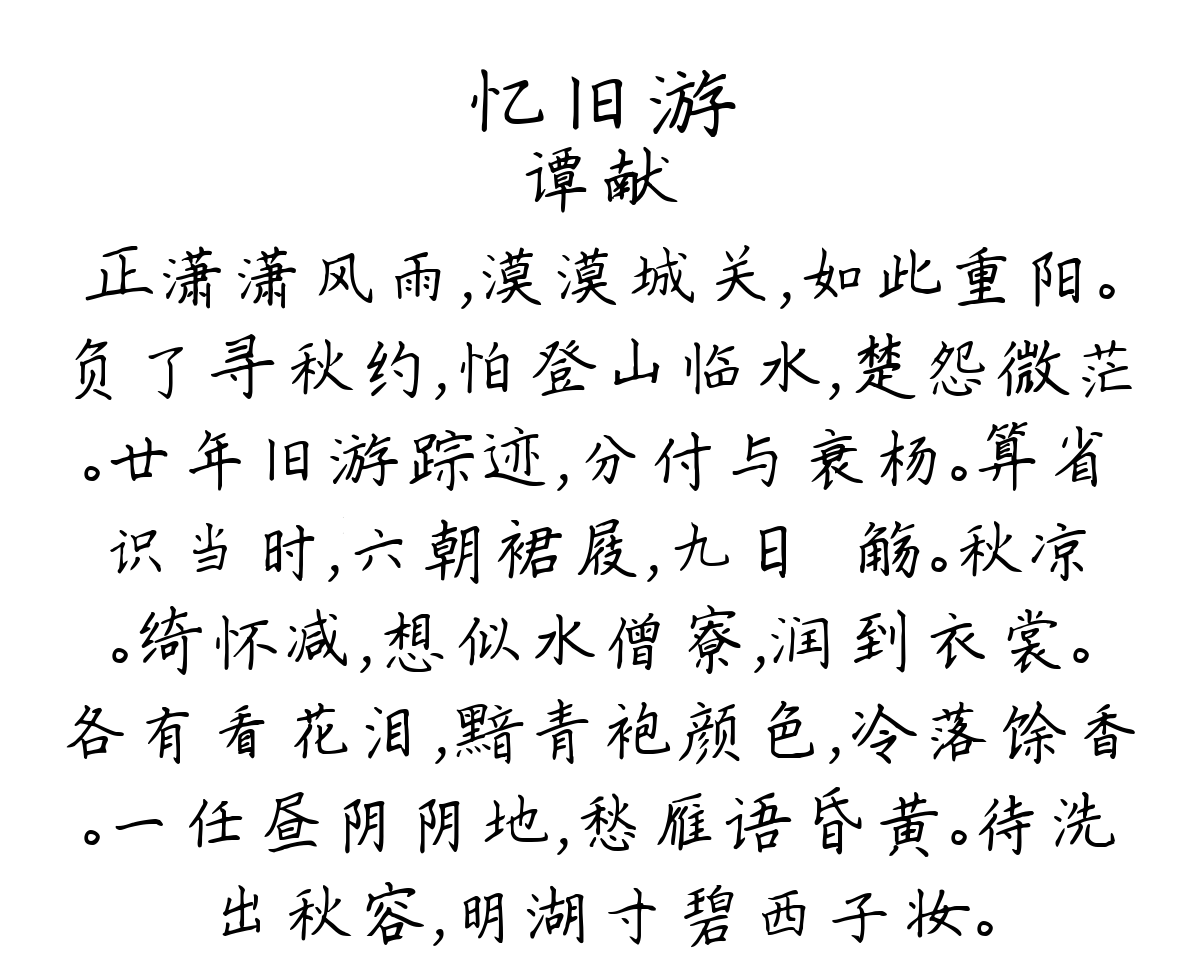 忆旧游
谭献
正潇潇风雨,漠漠城关,如此重阳。
负了寻秋约,怕登山临水,楚怨微茫
。廿年旧游踪迹,分付与衰杨。算省
识当时,六朝裙屐,九日 觞。秋凉
。绮怀减,想似水僧寮,润到衣裳。
各有看花泪,黯青袍颜色,冷落馀香
。一任昼阴阴地,愁雁语昏黄。待洗
出秋容,明湖寸碧西子妆。